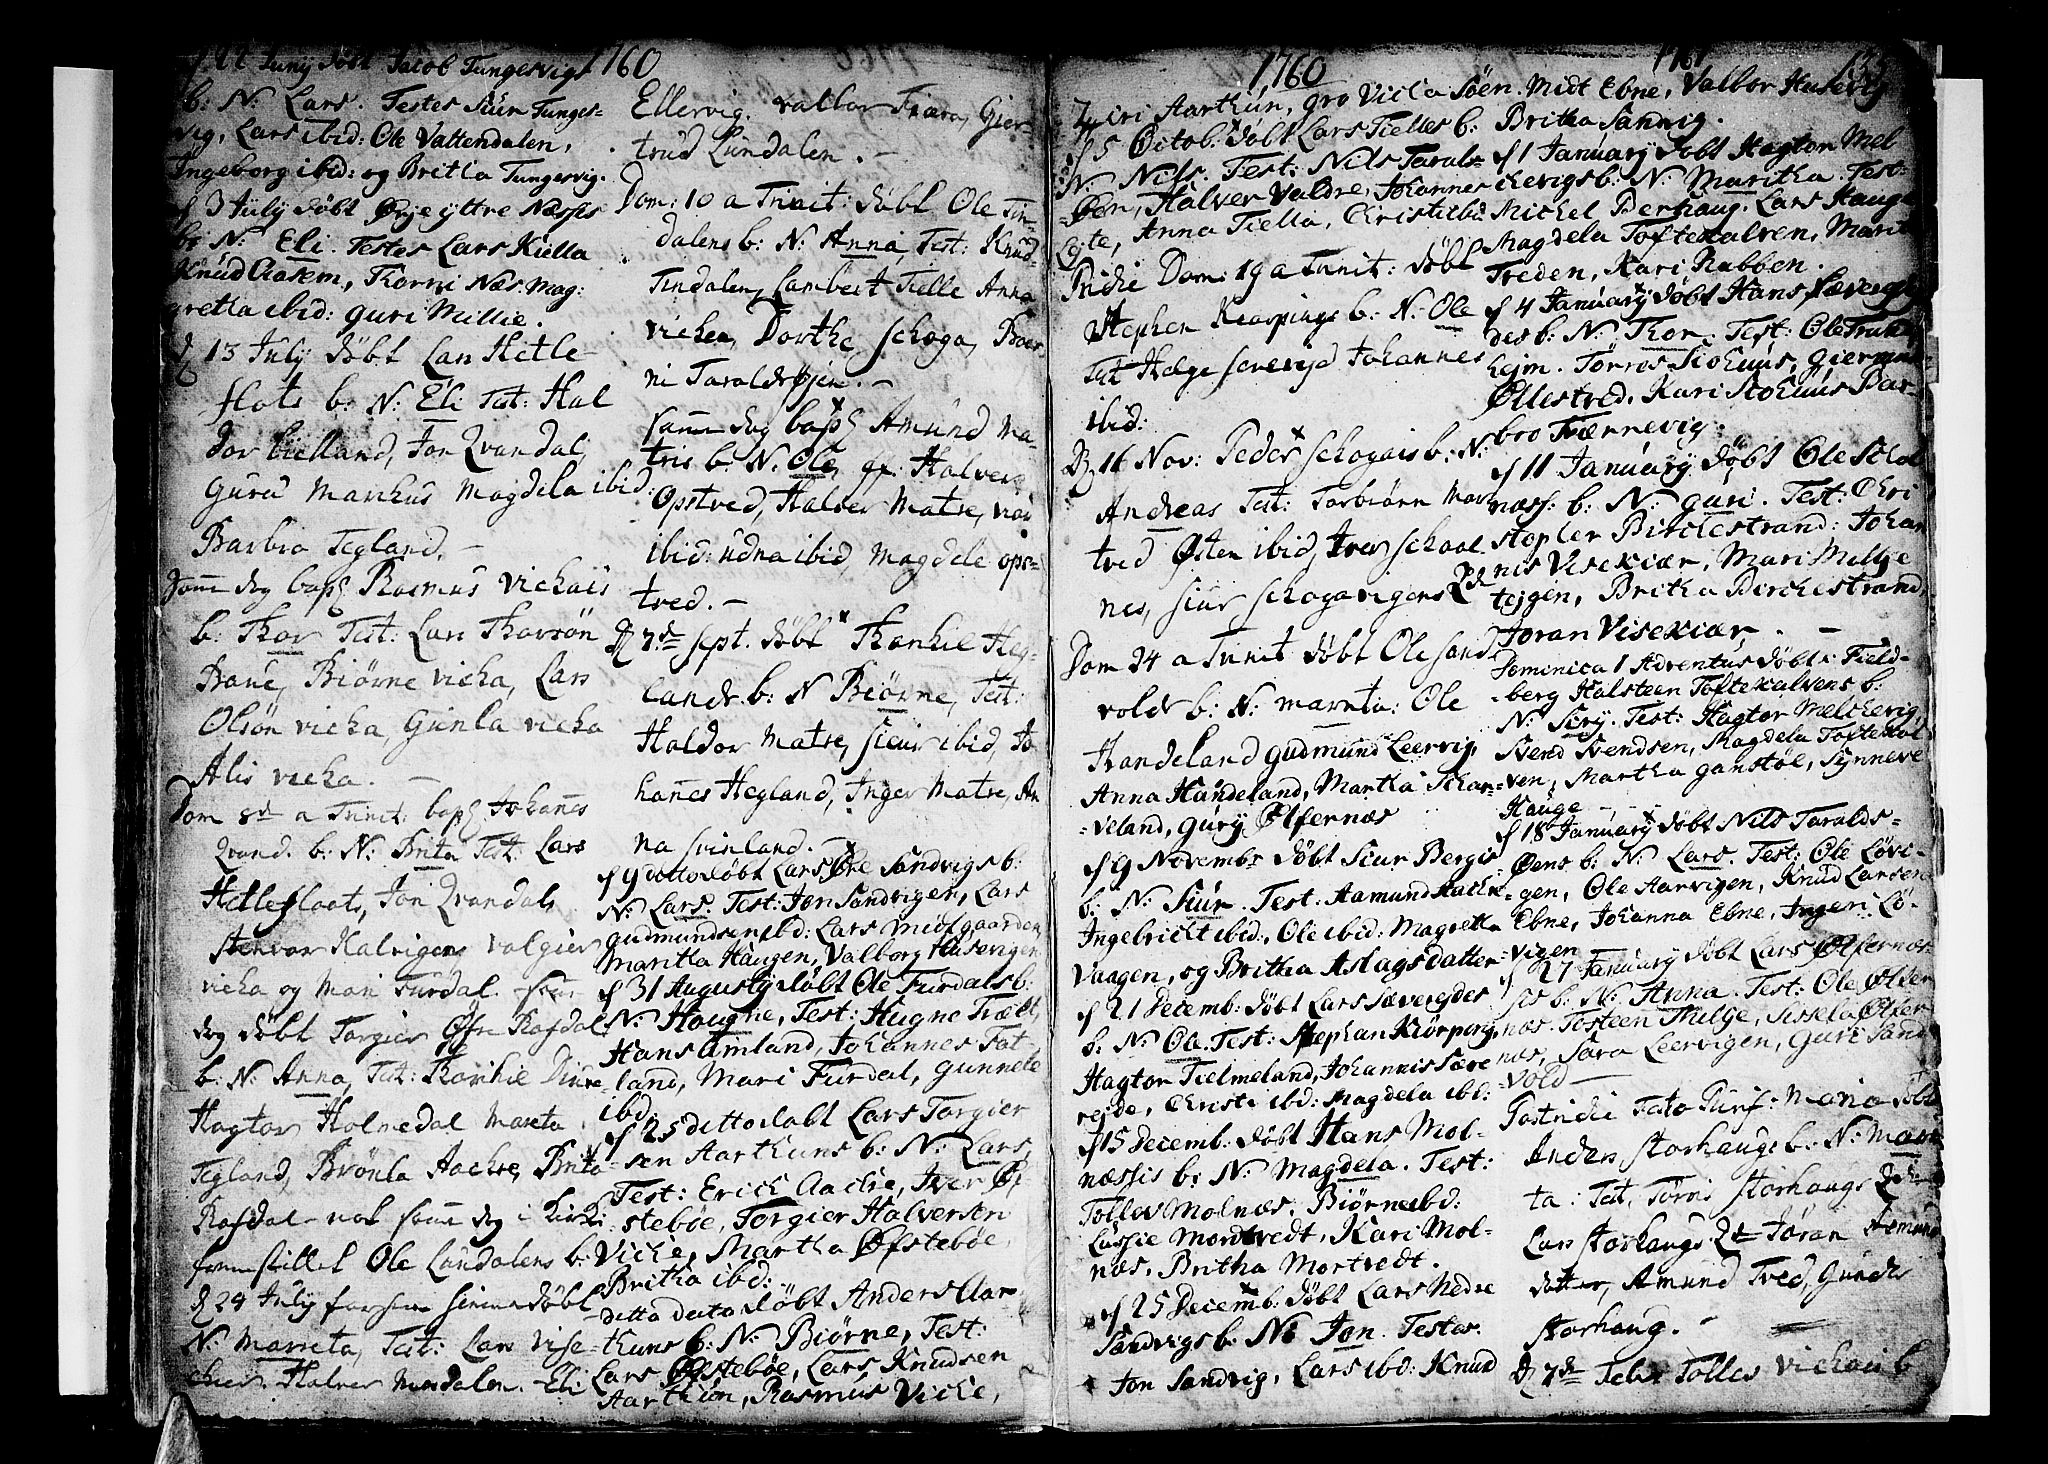 1760
d 22 Juny døbt Jacob Tungesvigs
b: N: Lars. Testes Siur Tunges-
vig, Lars ibid: Ole Vattendalen,
Ingeborg ibid: og Britha Tungesvig.
d 3 July døbt Ørje yttre Næsses
b: N: Eli. Testes Lars Kiella
Knud Aasem, Thorri Næs Mag:
gretha ibid: guri Millie.
d 13 July døbt Lars Hetle-
flots b: N: Eli Test: Hal
dor Lielland, Jon Qvandal,
Guru Marchus Magdela ibid:
Barbro Tegland. -
Samme dag bapt Rasmus Vichais
b: Thor Test: Lars Thorsøn
Baue, Biørne vicha, Lars
Olsøn vicha, Gunla vicha
Alis vicha. -
Dom 8de a Trinit: bapt Johannes
Qvand. b: N: Brita Test: Lars
Hetleflaats, Jon Qvandals
Stenvor Halvigen, Valgier
vicha og Mari Furdal. samme
dag døbt Torgier Øfre Rafdal
b: N: Anna, Test: Torchie
Hagtor Holmedal Marita
Tegland, Brønla Aachre, Brita
Rafdal - not samme dag i kirke
fremstillet Ole Lundalens b:
d 24 July døbt
N: Marreta, Test: Lars Vise-
chier. Halver Mondalen. Eli
Ellervig. Valbor Trara, Gier-
trud Lundalen. -
Dom: 10 a Trinit: døbt Ole Tin-
dalens b: N: Anna, Test: Knud
Tindalen, Lambert Tielle Anna
vichen, Dorthe Schoga, Boer-
ni Taraldsøjen. -
samme dag bapt Amund Ma-
tris b: N. Ole, gf: Halver
Opstved, Halver Matre,
ibid: udna ibid Magdele ops-
tved. -
d 7de Sept. døbt Thorkil Heg-
lands b: N Biørne, Test:
Haldor Matre, siur ibid, Jo
hannes Hegland, Inger Matre, An
na svinland. -
d 9 ditto døbt Lars Øvre Sandvigs b:
N: Lars. Test: Jon Sandvigen, Lars
Gudmundsen ibd: Lars Midtgaarden
Maritha Haugen, Valborg Husevigen
d 31 Augusty døbt Ole Furdals b:
N: Hougne, Test: Hugne Træet,
Hans Amland, Johannes Fat-
land, Mari Furdal, Gunnele
ibd:
d 25 ditto døbt Lars Torgier
sen Aarthuns b: N: Lars,
Test: Erich Aachre, Iver Øf
stebøe, Torgier Halversen
Viche, Martha Øfstebøe,
Britha ibd:
ditto dato døbt Anders Aar
thuns b: N: Biørne, Test:
Lars Øfstebøe, Lars Knudsen
Aarthun, Rasmus Viche,
1760
Zuiri Aarthun, gro Vicha
d 5 Octob: døbt Lars Tielles b:
N: Nils. Test: Nils Taralds-
Øen, Halver Valdre, Johannes
Løjte, Anna Tiella, Christi ibd
Pridie Dom: 19 a Trinit: døbt
Stephen Kiarpings b: N: Ole
Test Helge Sereejd Johannes
ibid:
d 16 Nov: Peder Schogais b: N:
Andreas Test: Torbiørn Mor
tved Østen ibid, Iver Schaal
nes, siur schogavigens
Dom 24 a Trinit døbt Ole Sand
volds b: N: Marreta: Ole
Handeland Gudmund Leervig,
Anna Handeland, Martha Schar-
veland, Gury Ølfernæs
d 9 Novembr døbt Siur Bergis
b: N: Siur. Test: Aamund
Ingebricht ibid:, Ole ibid: Magretha
Vaagen, og Britha Aslagsdatter
d 21 Decemb: døbt Lars Sævereides
b: N: Ole. Test: Stephan Kiørping,
Hagtor Tielmeland, Johannis Sære
rejde, Christi ibd: Magdela ibd:
d 15 Decemb: døbt Hans Mol-
næssis b: N: Magdela. Test:
Tolles Molnæs. Biørne ibd:
Lussie Mortvedt, Kari Mol-
næs, Britha Mortvedt.
d 25 Decemb: døbt Lars Nedre
Sandvigs b: N: Jon. Testes.
Jon Sandvig, Lars ibd: Knud
1761
135
Søen. Midt Ebne, Valbor Husevig
Britha Sannig.
d 1 January døbt Hagton Mel
chevigs b: N: Maritha. Test:
Michel Berhaug. Lars Hauge
Magdela Toftekalven, Marit
Treden, Kari Nabben.
d 4 January døbt Hans Sævereg
des b: N: Thor. Test: Ole
hejm. Torros Stohuus, Giermund
Øllestved. Kari Stohuus Bar-
bro Tværnevig.
d 11 January døbt Ole Skol
næss: b: N: guri. Test: Chri
stopher Birchestrand: Johan
nis Visekiær, Mari Millje
tejgen, Britha Birchestrand,
Joran Visekiær. -
Dominica 1 Adventus døbt i Field-
berg Halsteen Toftekalvens b:
N: Siry. Test: Hagtor Melchevig,
Svend Svendsen, Magdela Toftekal
ven, Martha ganstøl, Synneve
Hauge
d 18 January døbt Nils Taralds-
Øens b: N: Lars. Test: Ole Løvi-
gen, Ole Aarvigen, Knud Larsen
Ebne, Johanna Ebne, Ingeri Lø-
vigen
d 27 January døbt Lars Ølfernæs-
sis b: N: Anna. Test: Ole Ølfer
næs. Tosteen Milge, Siskela Ølfer
næs, Sara Leervigen, Guri Sand
vold
Postridie Festo Purif: Mariæ døbt
Anders Storhaugs b: N: Mari
ta: Test, Torris Storhaugs
Lars Storhaugs Joran Asmund
datter, Amund Tved, Gunder
Storhaug. -
d 7de Febr Tolles vichais b